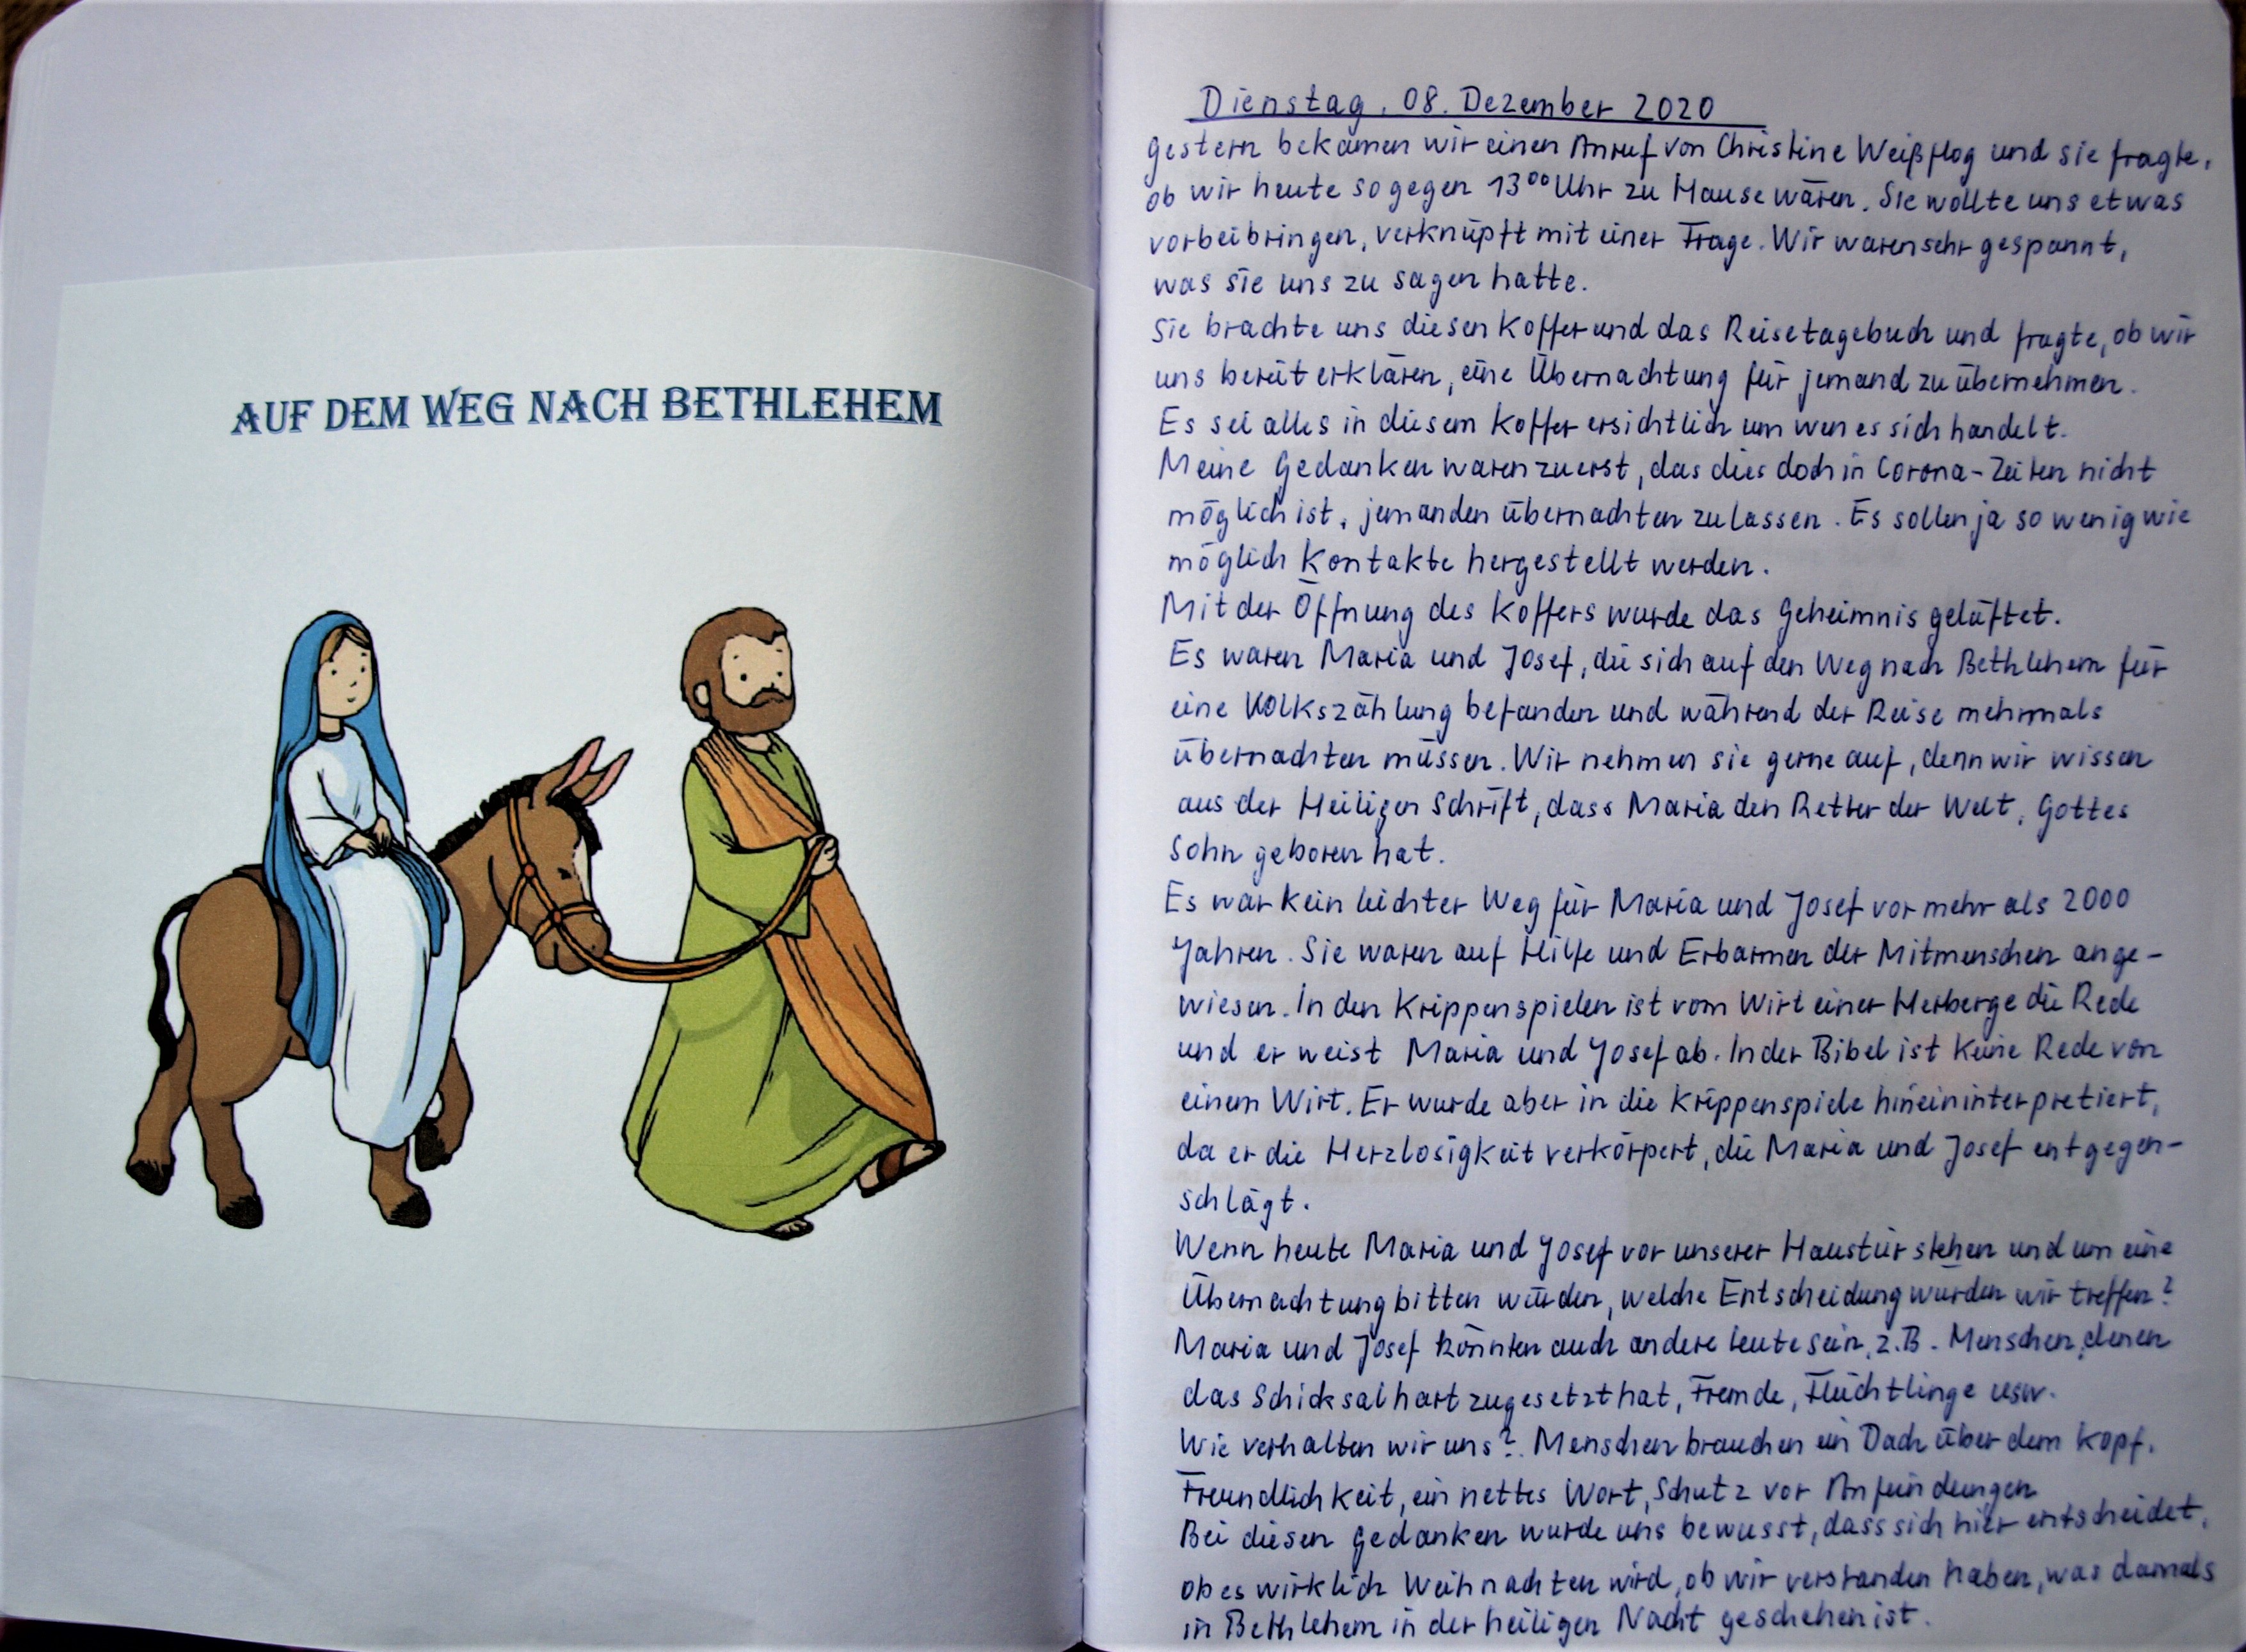 AUF DEM WEG NACH BETHLEHEM
Dienstag, 08. Dezember 2020
Gestern bekamen wir einen Anruf von Christine Weißflog und sie fragte,
ob wir heute so gegen 13⁰⁰ Uhr zu Hause wären. Sie wollte uns etwas
vorbeibringen, verknüpft mit einer Frage. Wir waren sehr gespannt,
was sie uns zu sagen hatte.
Sie brachte uns diesen Koffer und das Reisetagebuch und fragte, ob wir
uns bereit erklären, eine Übernachtung für jemand zu übernehmen.
Es sei alles in diesem Koffer ersichtlich um wen es sich handelt.
Meine Gedanken waren zuerst, das dies doch in Corona-Zeiten nicht
möglich ist, jemanden übernachten zu lassen. Es sollen ja so wenig wie
möglich Kontakte hergestellt werden.
Mit der Öffnung des Koffers wurde das Geheimnis gelüftet.
Es waren Maria und Josef, die sich auf den Weg nach Bethlehem für
eine Volkszählung befanden und während der Reise mehrmals
übernachten müssen. Wir nehmen sie gerne auf, denn wir wissen
aus der Heiligen Schrift, dass Maria den Retter der Welt, Gottes
Sohn geboren hat.
Es war kein leichter Weg für Maria und Josef vor mehr als 2000
Jahren. Sie waren auf Hilfe und Erbarmen der Mitmenschen ange-
wiesen. In den Krippenspielen ist vom Wirt einer Herberge die Rede
und er weist Maria und Josef ab. In der Bibel ist keine Rede von
einem Wirt. Er wurde aber in die Krippenspiele hineininterpretiert,
da er die Herzlosigkeit verkörpert, die Maria und Josef entgegen-
schlägt.
Wenn heute Maria und Josef vor unserer Haustür stehen und um eine
Übernachtung bitten würden, welche Entscheidung würden wir treffen?
Maria und Josef könnten auch andere Leute sein, z.B. Menschen, denen
das Schicksal hart zugesetzt hat, Fremde, Flüchtlinge usw.
Wie verhalten wir uns? Menschen brauchen ein Dach über dem Kopf,
Freundlichkeit, ein nettes Wort, Schutz vor Anfeindungen
Bei diesen Gedanken wurde uns bewusst, dass sich hier entscheidet,
ob es wirklich Weihnachten wird, ob wir verstanden haben, was damals
in Bethlehem in der heiligen Nacht geschehen ist.